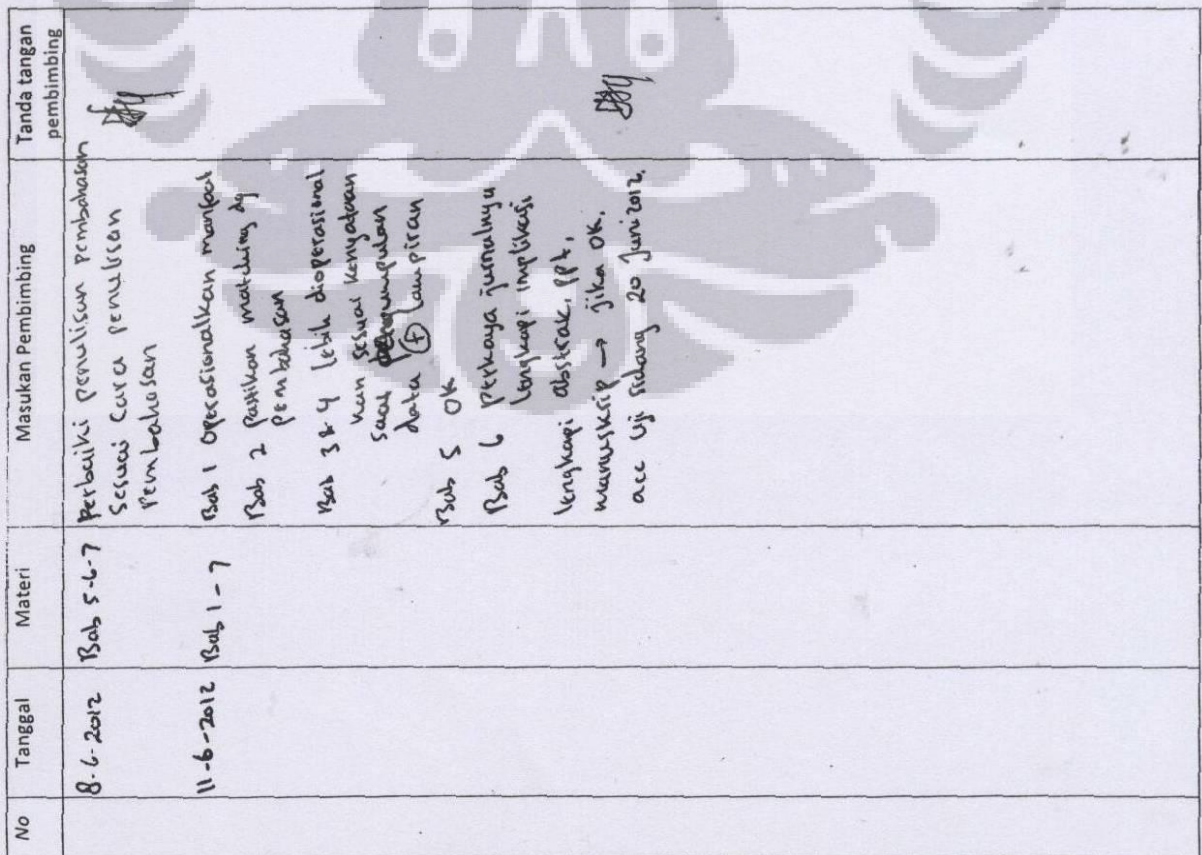 No Tanggal Materi Masukan Pembimbing Tanda tangan pembimbing
8-6-2012 Bab 5-6-7 Perbaiki penulisan pembahasan
sesuai cara penulisan
pembahasan
11-6-2012 Bab 1-7 Bab 1 Operasionalkan manfaat
Bab 2 pastikan matching dg
pembahasan
Bab 3&4 lebih dioperasional
kan sesuai kenyataan
saat pengumpulan
data (+) lampiran
Bab 5 OK
Bab 6 perkaya jurnalnya
lengkapi implikasi
lengkapi abstrak, ppt,
manuskrip → jika OK.
acc uji sidang 20 Juni 2012.